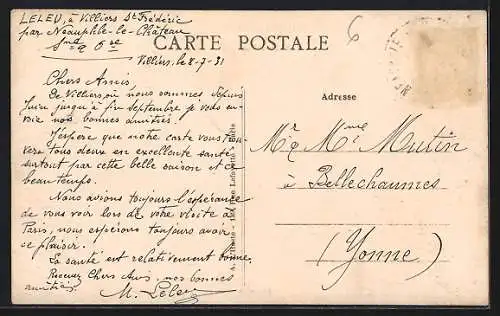 LELEU, à Villiers St Frédéric
par Neauphle-le-Château
S. & O.
CARTE POSTALE
Villiers, le 8-7-31
6
Chers Amis
De Villiers, où nous sommes depuis
Juin jusqu'à fin septembre je vous en-
voie nos bonnes amitiés.
J'espère que notre carte vous trou-
vera tous deux en excellente santé
surtout par cette belle saison et ce
beau temps.
Nous avions toujours l'espérance
de vous voir lors de votre visite à
Paris, nous espérons toujours avoir
ce plaisir.
La santé est relativement bonne.
Recevez Chers Amis, nos bonnes
amitiés.
M. Leleu
Adresse
Mr & Mme Mutin
à Bellechaumes
(Yonne)